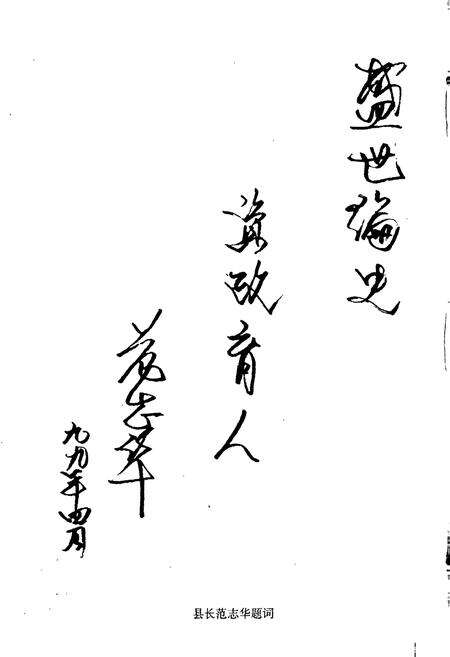 盛世编史
资政育人
范志华
九九年四月
县长范志华题词